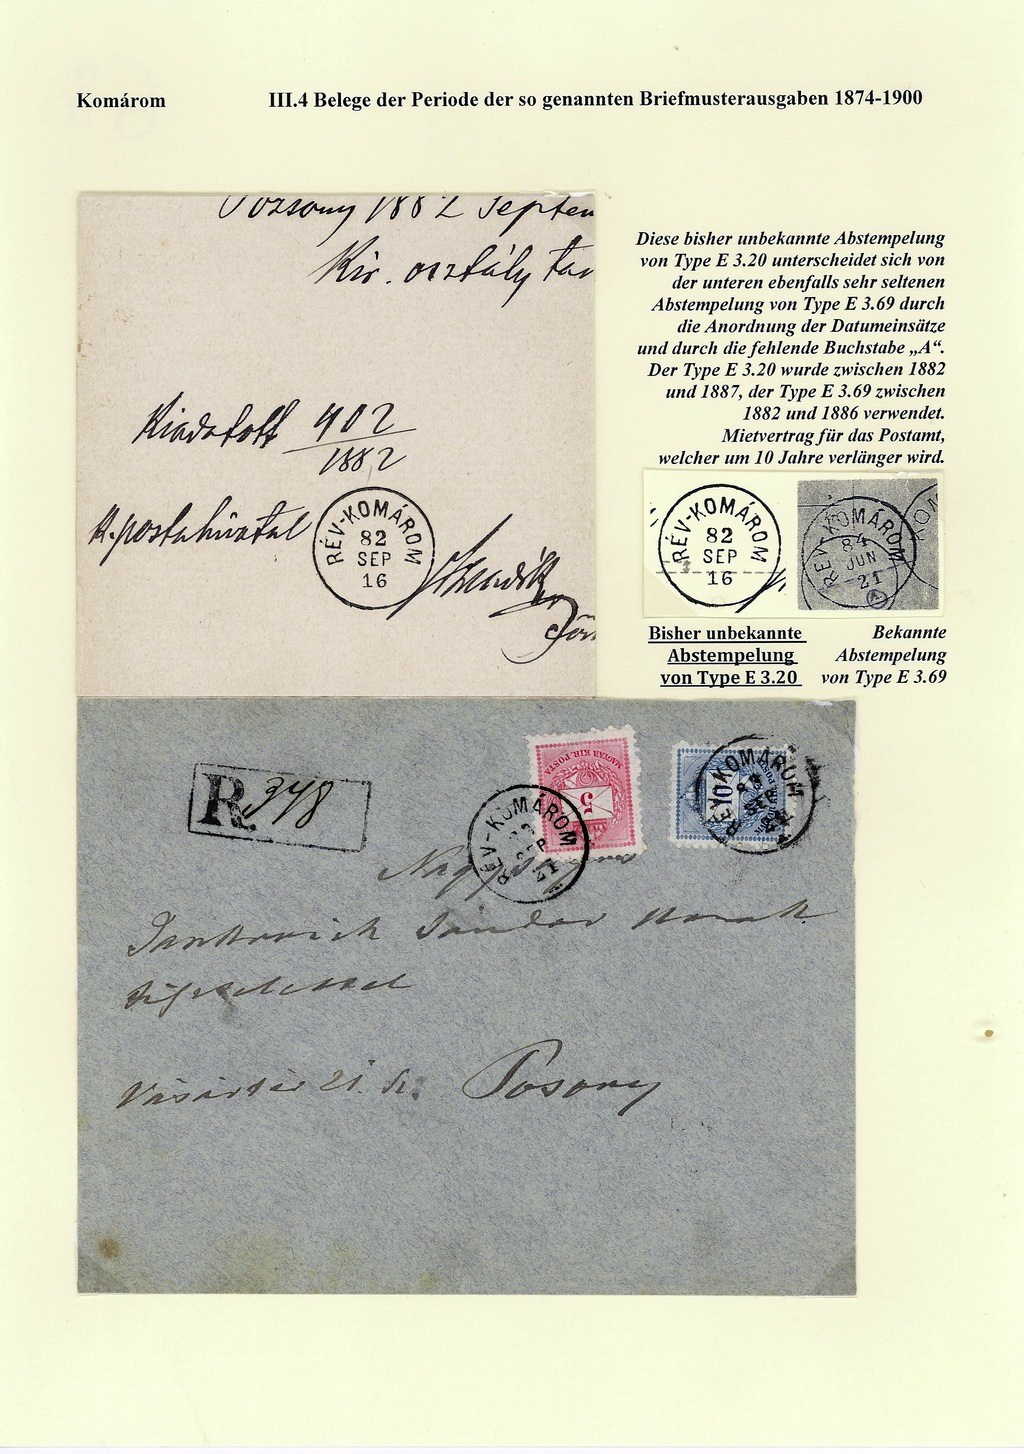 Komárom III.4 Belege der Periode der so genannten Briefmusterausgaben 1874-1900
Pozsony 1882 Septem
Kir. osztály tan
Kiadatott 402
1882
K. postahivatal
RÉV-KOMÁROM
82
SEP
16
Diese bisher unbekannte Abstempelung
von Type E 3.20 unterscheidet sich von
der unteren ebenfalls sehr seltenen
Abstempelung von Type E 3.69 durch
die Anordnung der Datumeinsätze
und durch die fehlende Buchstabe „A“.
Der Type E 3.20 wurde zwischen 1882
und 1887, der Type E 3.69 zwischen
1882 und 1886 verwendet.
Mietvertrag für das Postamt,
welcher um 10 Jahre verlänger wird.
RÉV-KOMÁROM
82
SEP
16
RÉV-KOMÁROM
84
JUN
21
A
KOM
Bisher unbekannte
Abstempelung
von Type E 3.20
Bekannte
Abstempelung
von Type E 3.69
R. 348
MAGYAR KIR. POSTA
5
RÉV-KOMÁROM
SEP
21
RÉV-KOMÁROM
SEP
Sándor
21
Posony